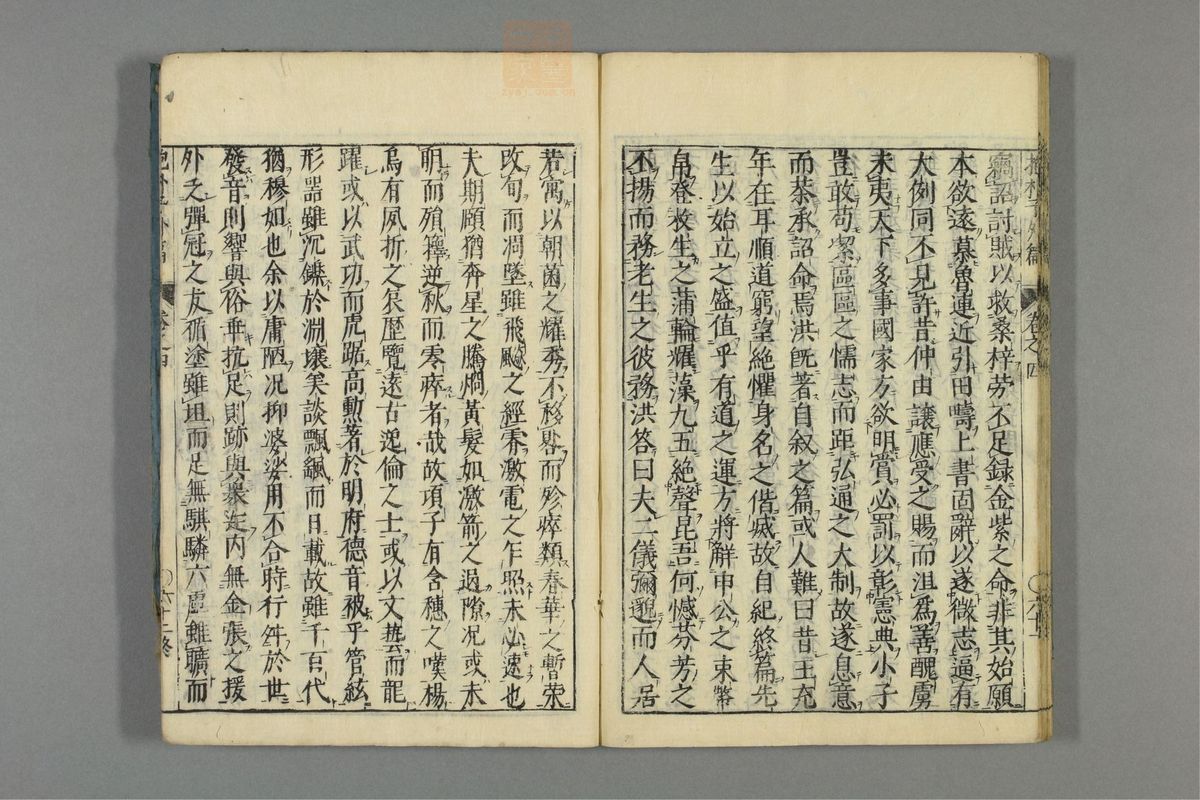 抱朴子外篇 卷之四
竊謂討賊以救桑梓勞不足録金紫之命非其始願
本欲遠慕魯連近引田疇上書固辭以遂微志適有
大例同不見許昔仲由讓應受之賜而沮爲善醜虜
未夷天下多事國家方欲明賞必罰以彰憲典小子
豈敢苟潔區區之懦志而距弘通之大制故遂息意
而恭承詔命焉洪既著自叙之篇或人難曰昔王充
年在耳順道窮望絶懼身名之偕滅故自紀終篇先
生以始立之盛值乎有道之運方將解申公之束帛
登枚生之蒲輪耀藻九五絶聲昆吾何憾芬芳之
不揚而務老生之彼務洪答曰夫二儀彌邈而人居
若寓以朝菌之耀秀不移晷而殄瘁類春華之暫榮
改旬而凋墜雖飛飈之經霄激電之乍照未必速也
夫期頤猶奔星之騰烟黃髮如激箭之過隙况或未
萌而殞籜逆秋而零瘁者哉故項子有含穗之嘆楊
烏有夙折之哀歷覽遠古逸倫之士或以文藝而龍
躍或以武功而虎踞高勳著於明府德音被乎管絃
形器雖沉鑠於淵壤美談飄颻而日載故雖千百代
猶穆如也余以庸陋况抑婆娑用不合時行舛於世
發音則響與俗乖抗足則跡與衆迕内無金張之援
外乏彈冠之友循塗雖坦而足無騏驎六虛雖曠而